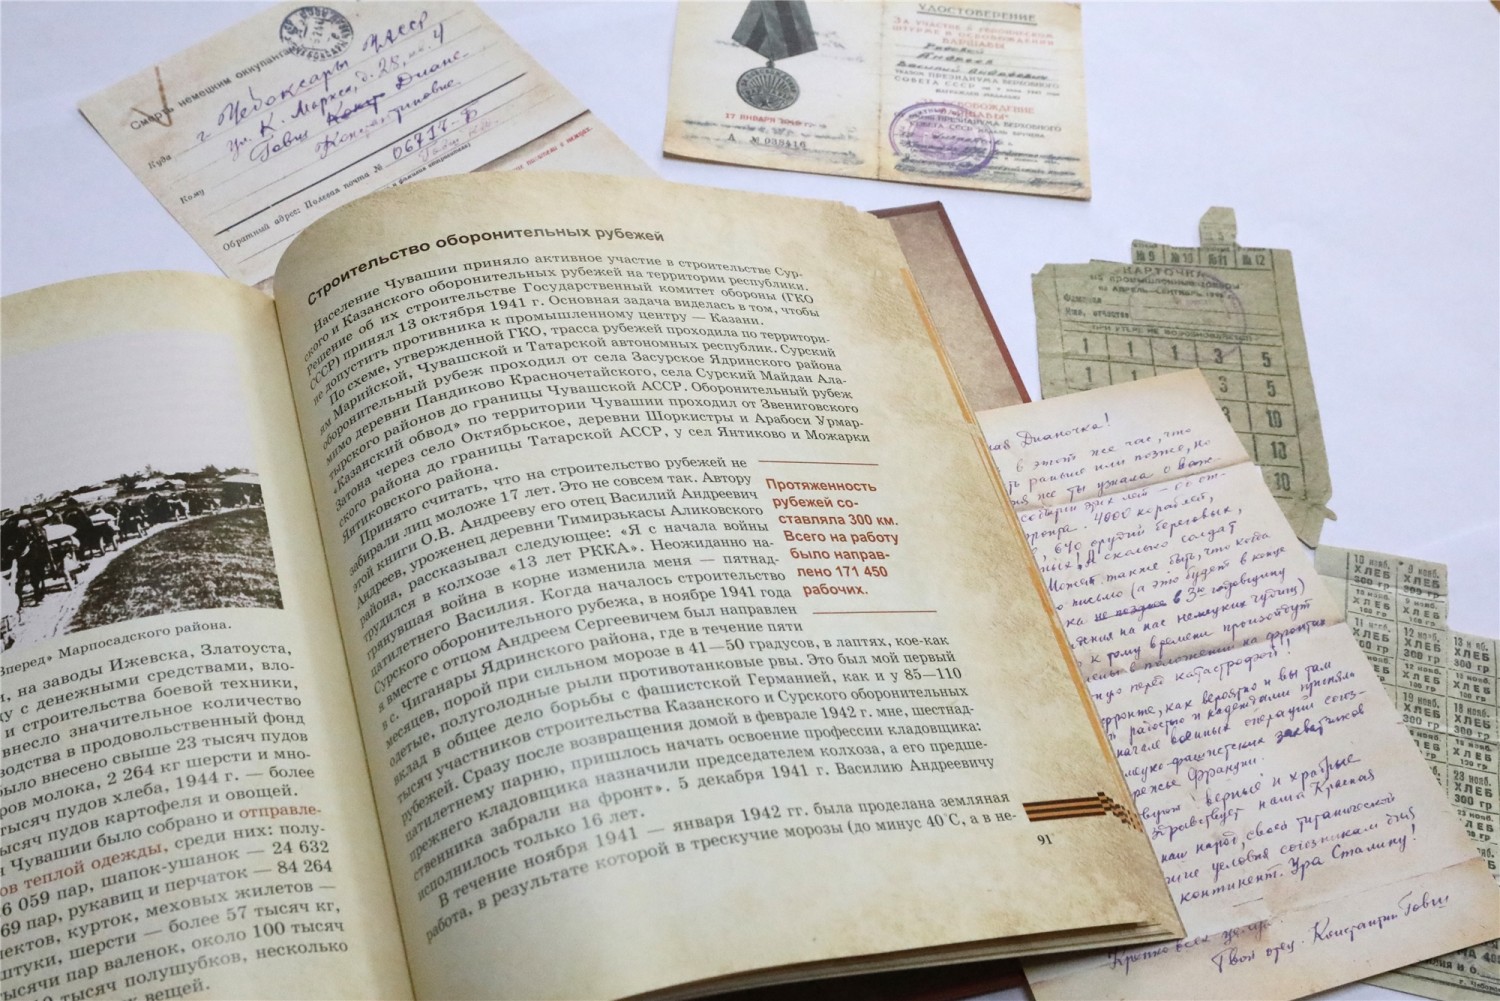 Смерть немецким оккупантам
Куда г. Чебоксары ЧАССР
ул. К. Маркса, д. 28, кв. 4
Кому Говш Диане
Константиновне.
Обратный адрес: Полевая почта № 06717-Ф
УДОСТОВЕРЕНИЕ
ЗА УЧАСТИЕ В ГЕРОИЧЕСКОМ
ШТУРМЕ И ОСВОБОЖДЕНИИ
ВАРШАВЫ
Рядовой
Андреев
Василий Андреевич
УКАЗОМ ПРЕЗИДИУМА ВЕРХОВНОГО
СОВЕТА СССР
НАГРАЖДЕН МЕДАЛЬЮ
„ЗА ОСВОБОЖДЕНИЕ
ВАРШАВЫ“
17 ЯНВАРЯ 1945
А № 035416
Строительство оборонительных рубежей
Население Чувашии приняло активное участие в строительстве Сур-
ского и Казанского оборонительных рубежей на территории республики.
Решение об их строительстве Государственный комитет обороны (ГКО
СССР) принял 13 октября 1941 г. Основная задача виделась в том, чтобы
не допустить противника к промышленному центру — Казани.
По схеме, утвержденной ГКО, трасса рубежей проходила по территори-
ям Марийской, Чувашской и Татарской автономных республик. Сурский
оборонительный рубеж проходил от села Засурское Ядринского района
мимо деревни Пандиково Красночетайского, села Сурский Майдан Ала-
тырского районов до границы Чувашской АССР. Оборонительный рубеж
«Казанский обвод» по территории Чувашии проходил от Звениговского
Затона через село Октябрьское, деревни Шоркистры и Арабоси Урмар-
ского района до границы Татарской АССР, у сел Янтиково и Можарки
Янтиковского района.
Принято считать, что на строительство рубежей не
забирали лиц моложе 17 лет. Это не совсем так. Автору
этой книги О.В. Андрееву его отец Василий Андреевич
Андреев, уроженец деревни Тимирзькасы Аликовского
района, рассказывал следующее: «Я с начала войны
трудился в колхозе «13 лет РККА». Неожиданно на-
гринувшая война в корне изменила меня — пятнад-
цатилетнего Василия. Когда началось строительство
Сурского оборонительного рубежа, в ноябре 1941 года
я вместе с отцом Андреем Сергеевичем был направлен
в с. Чиганары Ядринского района, где в течение пяти
месяцев, порой при сильном морозе в 41—50 градусов, в лаптях, кое-как
одетые, полуголодные рыли противотанковые рвы. Это был мой первый
вклад в общее дело борьбы с фашистской Германией, как и у 85—110
тысяч участников строительства Казанского и Сурского оборонительных
рубежей. Сразу после возвращения домой в феврале 1942 г. мне, шестнад-
цатилетнему парню, пришлось начать освоение профессии кладовщика:
прежнего кладовщика назначили председателем колхоза, а его предше-
ственника забрали на фронт». 5 декабря 1941 г. Василию Андреевичу
исполнилось только 16 лет.
В течение ноября 1941 — января 1942 гг. была проделана земляная
работа, в результате которой в трескучие морозы (до минус 40°С, а в не-
Протяженность
рубежей со-
ставляла 300 км.
Всего на работу
было направ-
лено 171 450
рабочих.
91
Вперед» Марпосадского района.
, на заводы Ижевска, Златоуста,
у с денежными средствами, вло-
и строительства боевой техники,
внесло значительное количество
водства в продовольственный фонд
было внесено свыше 23 тысяч пудов
ров молока, 2 264 кг шерсти и мно-
тысяч пудов хлеба, 1944 г. — более
тысяч пудов картофеля и овощей.
Чувашии было собрано и отправле-
ов теплой одежды, среди них: полу-
6 059 пар, шапок-ушанок — 24 632
69 пар, рукавиц и перчаток — 84 264
лектов, курток, меховых жилетов —
штуки, шерсти — более 57 тысяч кг,
тысячи пар валенок, около 100 тысяч
тысяч полушубков, несколько
вещей.
№ 9 № 10 № 11 № 12
КАРТОЧКА
НА ПРОМЫШЛЕННЫЕ ТОВАРЫ
Фамилия
Имя, отчество
ПРИ УТЕРЕ НЕ ВОЗОБНОВЛЯЕТСЯ
1 1 1 3 5
1 1 5
10
13
30
Дианочка!
в этот же час, что
раньше или позже, но
же ты узнала о важ-
4000 кораблей,
640 орудий береговых,
сколько солдат
Может также быть, что когда
письмо (а это будет в конце
к тому времени произойдут
перед катастрофой!
фронте, как вероятно и вы там
радостью и надеждами приняли
начале военных операций союз-
Франции.
верные и храбрые
здравствует наша Красная
наш народ, своей титанической
условия союзникам для
континент. Ура Сталину!
Крепко всех целую.
Твой отец. Константин Говш
10 нояб. ХЛЕБ 300 гр
9 нояб. ХЛЕБ 300 гр
11 нояб. ХЛЕБ
12 нояб. ХЛЕБ
13 нояб. ХЛЕБ 300 гр
19 нояб. ХЛЕБ
18 нояб. ХЛЕБ 300 гр
23 нояб. ХЛЕБ 300 гр